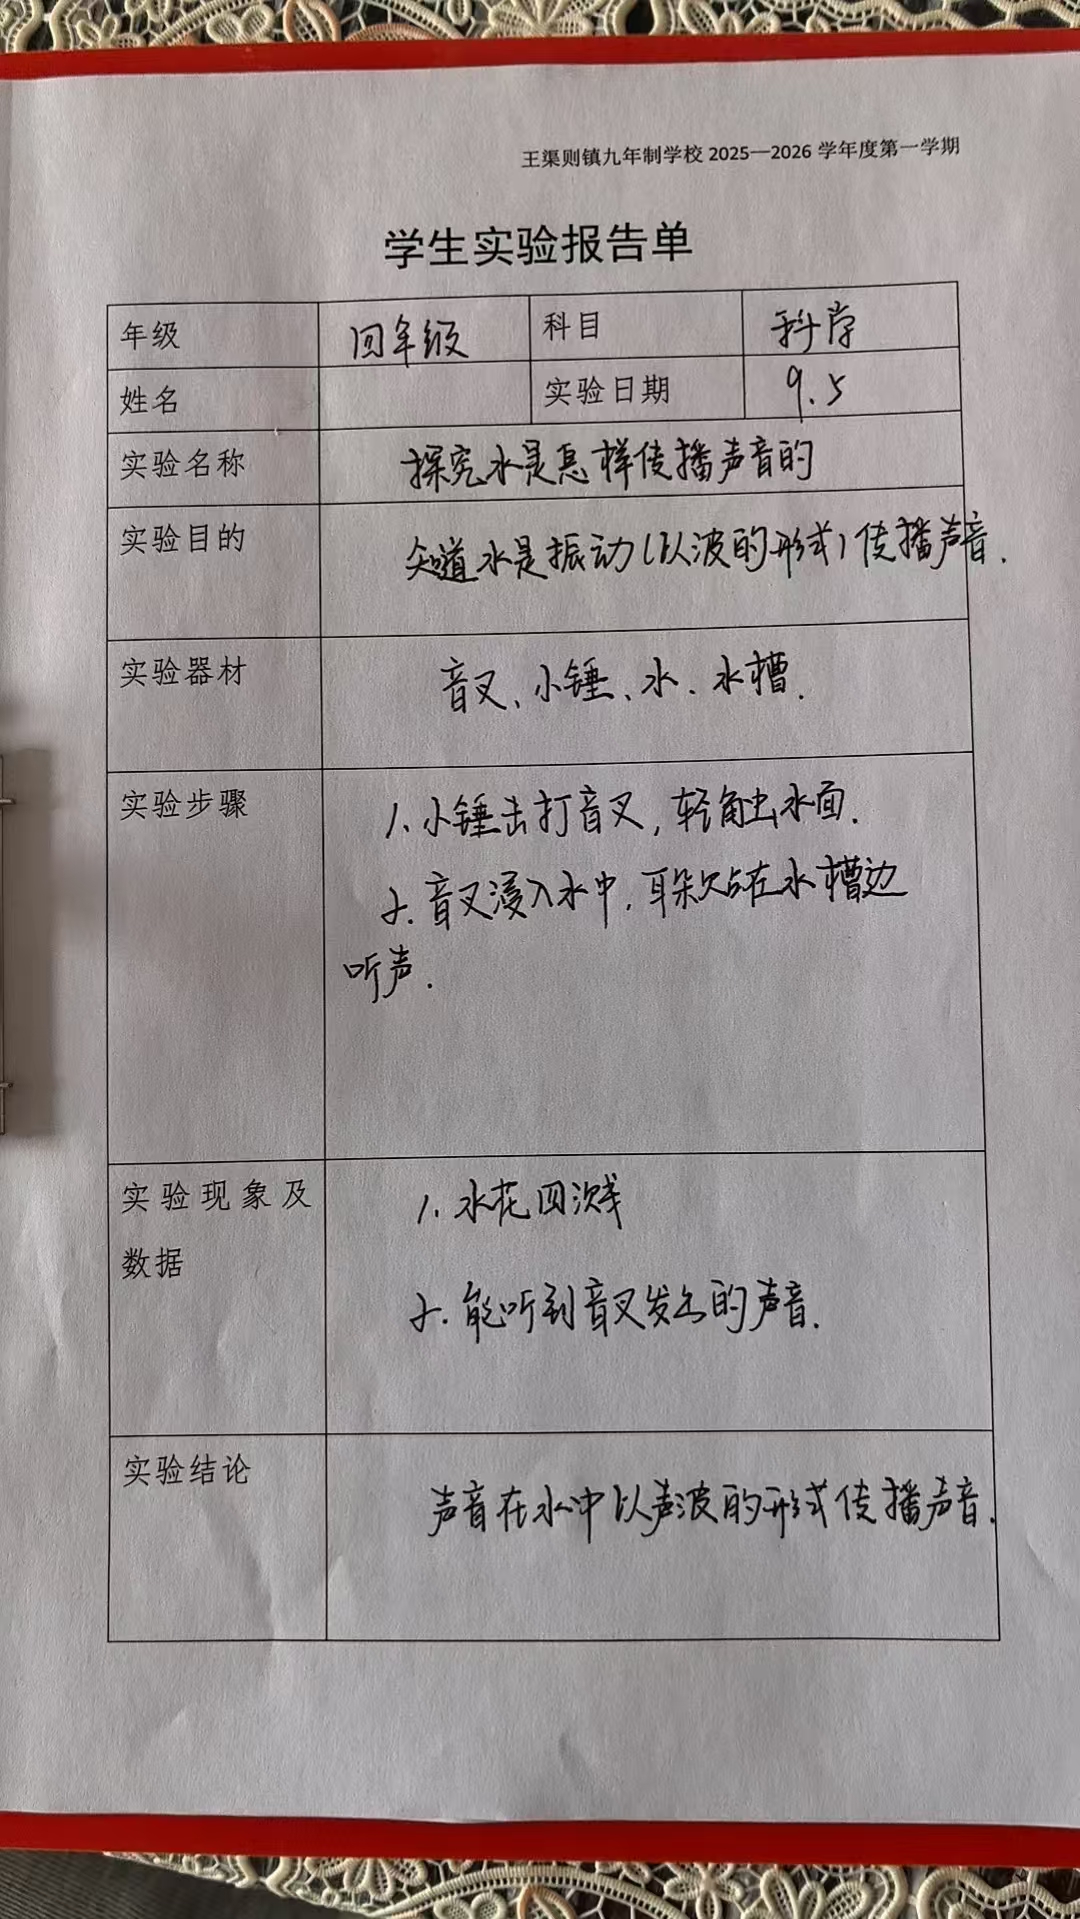 王渠则镇九年制学校 2025—2026 学年度第一学期
学生实验报告单
年级 四年级 科目 科学
姓名 实验日期 9.5
实验名称 探究水是怎样传播声音的
实验目的 知道水是振动(以波的形式)传播声音.
实验器材 音叉、小锤、水、水槽.
实验步骤 1.小锤击打音叉,轻触水面.
2.音叉浸入水中,耳朵贴在水槽边
听声.
实验现象及 1.水花四溅
数据
2.能听到音叉发出的声音.
实验结论 声音在水中以声波的形式传播声音.